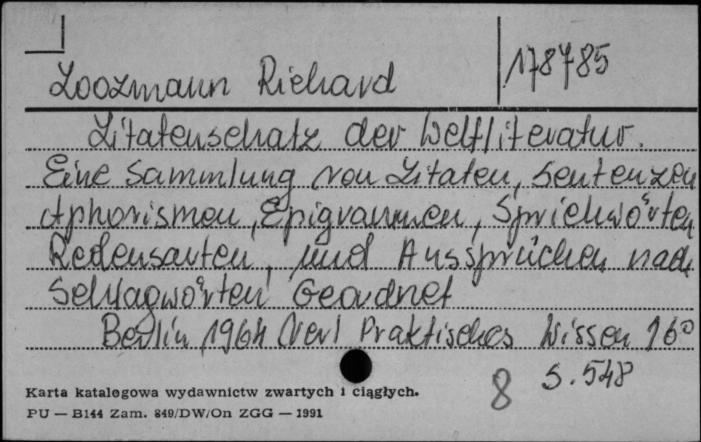 Zoozmann Richard
178785
Zitatenschatz der Weltliteratur.
Eine Sammlung von Zitaten, Sentenzen
Aphorismen, Epigrammen, Sprichwörten
Redensarten, und Aussprüchen nach
Schlagwörten Geordnet
Berlin 1964 Verl Praktisches Wissen 16°
8 S. 548
Karta katalogowa wydawnictw zwartych i ciągłych.
PU — B144 Zam. 849/DW/On ZGG — 1991